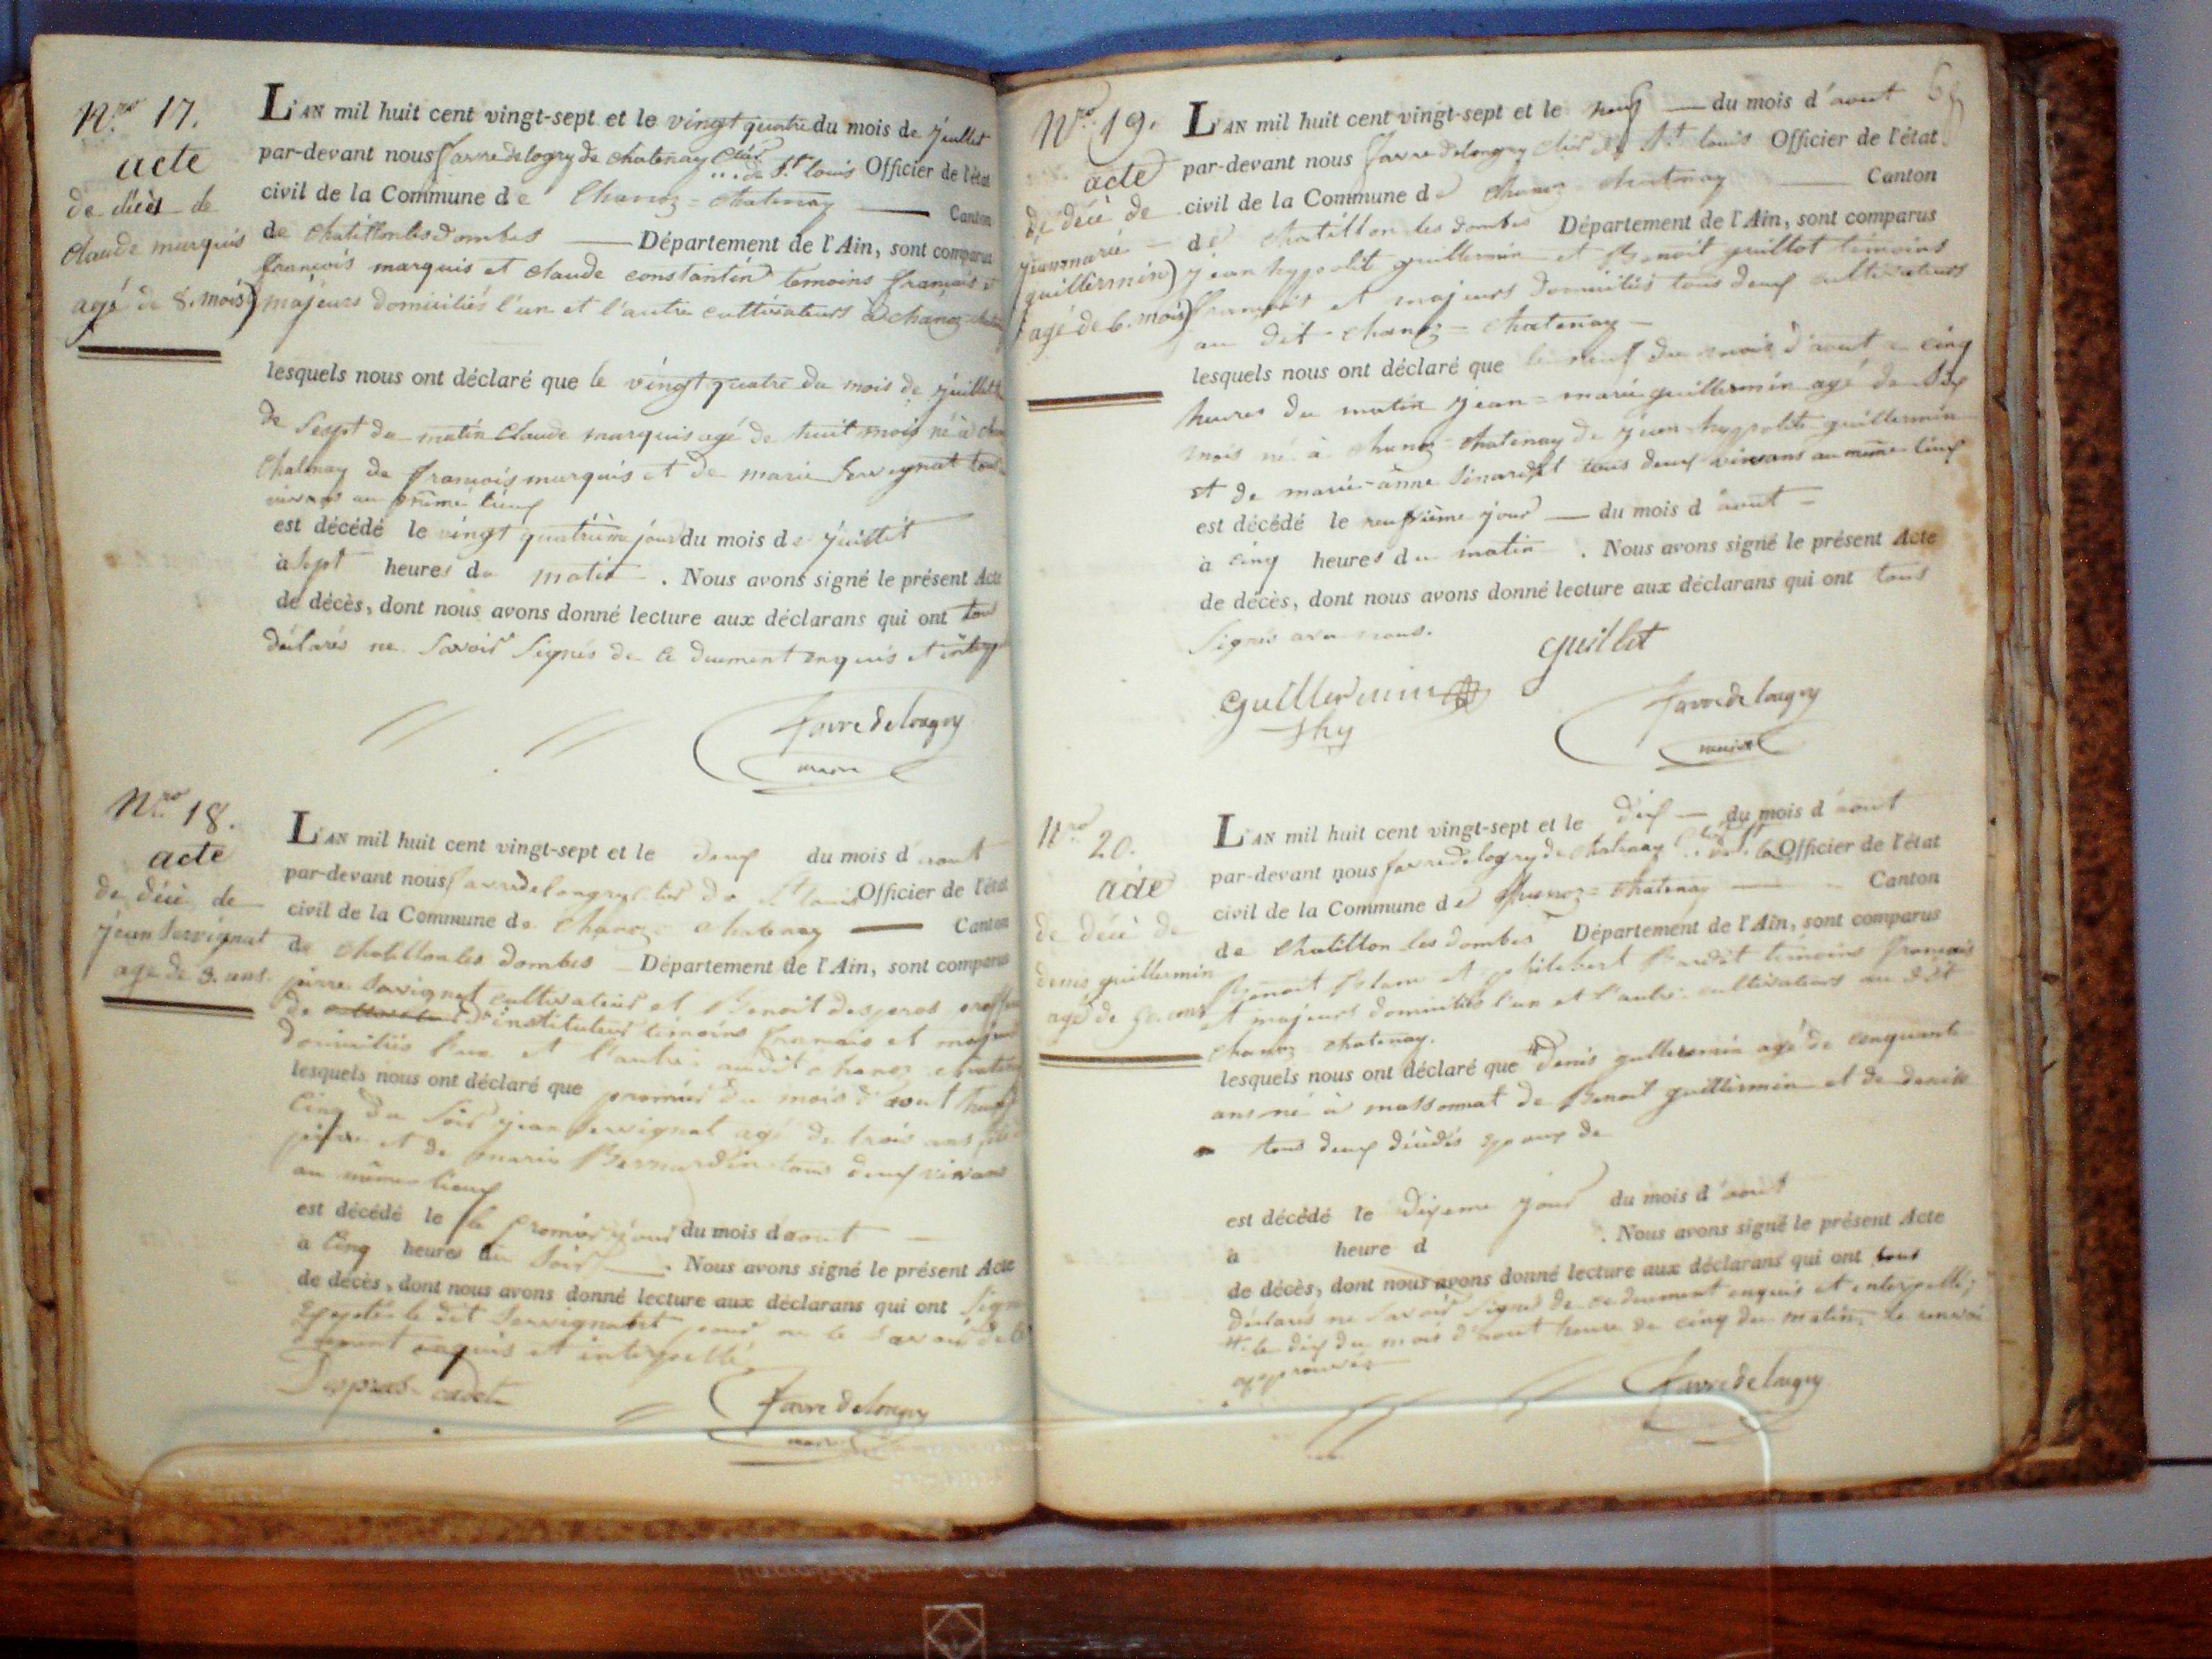 Nro 17.
acte
de décès de
Claude marquis
agé de 8. mois
L'AN mil huit cent vingt-sept et le vingt quatre du mois de juillet
par-devant nous favredelogry de chatenay Cher
de St. louis Officier de l'état
civil de la Commune de Chanoz = chatenay Canton
de chatillon les Dombes Département de l'Ain, sont comparus
françois marquis et claude constantin temoins français et
majeurs domiciliés l'un et l'autre cultivateurs à chanoz
lesquels nous ont déclaré que le vingt quatre du mois de juillet
de sept du matin Claude marquis agé de huit mois né à
Chatenay de françois marquis et de marie Servignat
vivans au même lieux
est décédé le vingt quatrième jour du mois de juillet
à sept heures du matin. Nous avons signé le présent Acte
de décès, dont nous avons donné lecture aux déclarans qui ont tous
déclarés ne savoir signés de ce duement enquis et
favre de longry
maire
Nro 18.
acte
de décè de
jean Servignat
age de 3. ans.
L'AN mil huit cent vingt-sept et le deux du mois d'aout
par-devant nous favredelongry Cher de St louis Officier de l'état
civil de la Commune de Chanoz chatenay Canton
de chatillon les Dombes Département de l'Ain, sont comparus
pierre Servignat cultivateur et Benoit desperas
de instituteur temoins français et majeurs
domiciliés l'un et l'autre audit chanoz
lesquels nous ont déclaré que premier du mois d'aout
Cinq du soir jean servignat agé de trois ans
pierre et de marie Bernardin tous deux vivans
au même lieux
est décédé le le premier jour du mois d'aout
à Cinq heures du soir. Nous avons signé le présent Acte
de décès, dont nous avons donné lecture aux déclarans qui ont
excepté le dit Servignat pour ne le savoir de ce
enquis et interpellé
Despras cadet
favre de longry
Nro 19.
acte
de décè de
jean marie
guillermin
agé de 6. mois
L'AN mil huit cent vingt-sept et le neuf du mois d'aout
par-devant nous favre delongry Cher de St louis Officier de l'état
civil de la Commune de Chanoz chatenay Canton
de chatillon les dombes Département de l'Ain, sont comparus
jean hypolite guillermin et Benoit guillot temoins
français et majeurs domiciliés tous deux cultivateurs
au dit chanoz = chatenay
lesquels nous ont déclaré que le neuf du mois d'aout a cinq
heures du matin jean = marie guillermin agé de six
mois né à chanoz = chatenay de jean hypolite guillermin
et de marie-anne tous deux vivans au même lieux
est décédé le neuvième jour du mois d'aout
à cinq heures du matin. Nous avons signé le présent Acte
de décès, dont nous avons donné lecture aux déclarans qui ont tous
signés avec nous.
guillot
guillermin
hy
favre de longry
maire
Nro 20.
acte
de décè de
denis guillermin
agé de 50. ans
L'AN mil huit cent vingt-sept et le dix du mois d'aout
par-devant nous favredelogry de chatenay Officier de l'état
civil de la Commune de Chanoz = chatenay Canton
de chatillon les dombes Département de l'Ain, sont comparus
Benoit et philibert temoins français
et majeurs domiciliés l'un et l'autre cultivateurs au dit
chanoz chatenay.
lesquels nous ont déclaré que denis guillermin agé de cinquante
ans né à massonnat de Benoit guillermin et de denise
tous deux décédés epoux de
est décédé le dixieme jour du mois d'aout
à heure d . Nous avons signé le présent Acte
de décès, dont nous avons donné lecture aux déclarans qui ont tous
déclarés ne savoir signés de ce duement enquis et interpellé;
le dix du mois d'aout heure de cinq du matin, le renvoi
approuvés
favre de longry